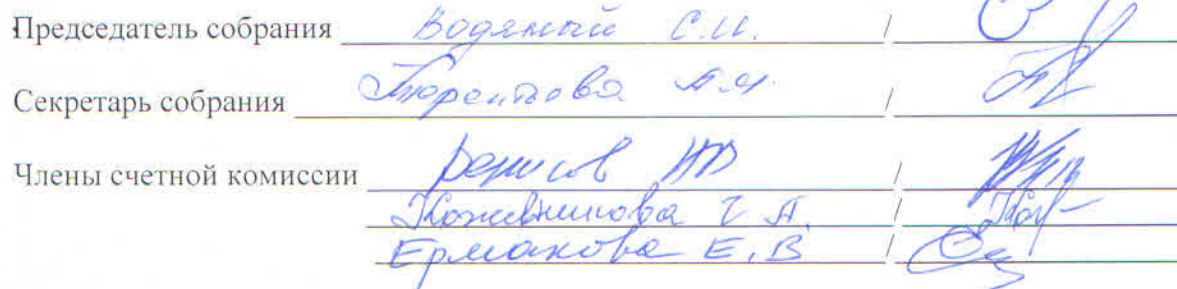 Председатель собрания Водяный С.И. /
Секретарь собрания А.Я. /
Члены счетной комиссии Денисов /
Кожевникова Г.А. /
Ермакова Е.В /